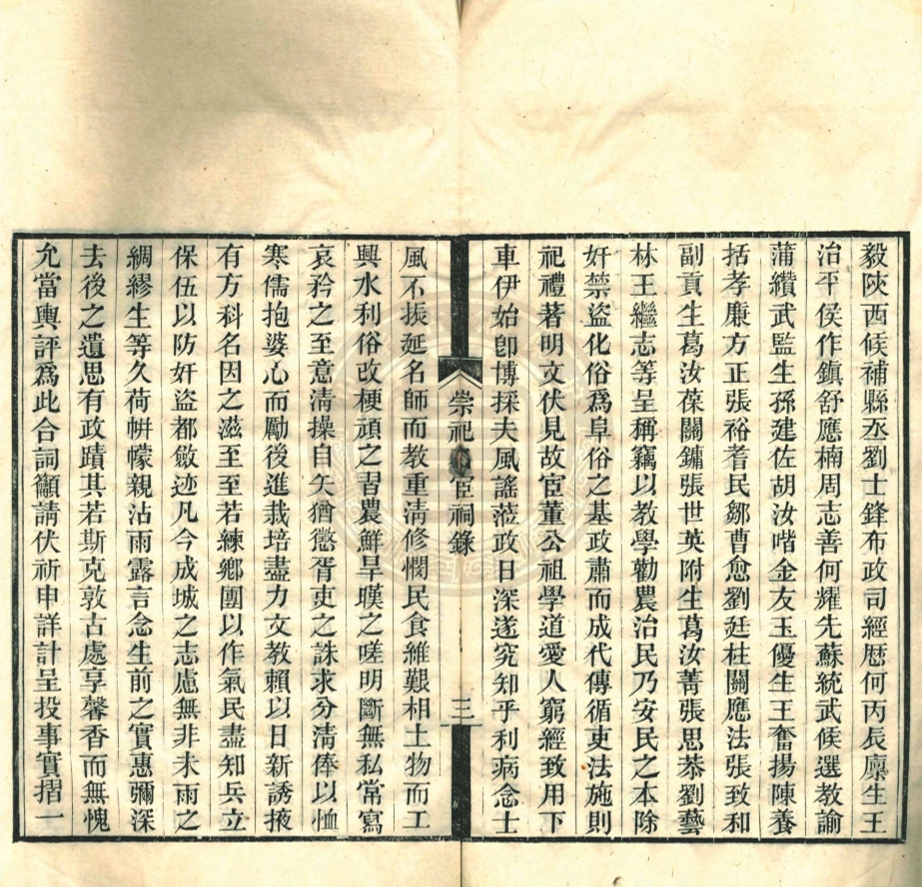 毅陝西候補縣丞劉士鋒布政司經厯何丙辰廪生王
治平侯作鎮舒應楠周志善何耀先蘇統武候選教諭
蒲纘武監生孫建佐胡汝喈金友玉優生王奮揚陳養
括孝廉方正張裕耆民鄒曹愈劉廷柱關應法張致和
副貢生葛汝葆關鏞張世英附生葛汝菁張思恭劉藝
林王繼志等呈稱竊以教學勸農治民乃安民之本除
奸禁盜化俗爲阜俗之基政肅而成代傳循吏法施則
祀禮著明文伏見故宦董公祖學道愛人窮經致用下
車伊始卽博採夫風謠蒞政日深遂究知乎利病念士
崇祀名宦祠錄
三
風不振延名師而教重清修憫民食維艱相土物而工
興水利俗改梗頑之習農鮮旱暵之嗟明斷無私常寫
哀矜之至意清操自矢猶懲胥吏之誅求分清俸以恤
寒儒抱婆心而勵後進栽培盡力文教賴以日新誘掖
有方科名因之滋至至若練鄉團以作氣民盡知兵立
保伍以防奸盜都斂迹凡今成城之志慮無非未雨之
綢繆生等久荷帡幪親沾雨露言念生前之實惠彌深
去後之遺思有政蹟其若斯克敦古處享馨香而無愧
允當輿評爲此合詞籲請伏祈申詳計呈投事實摺一